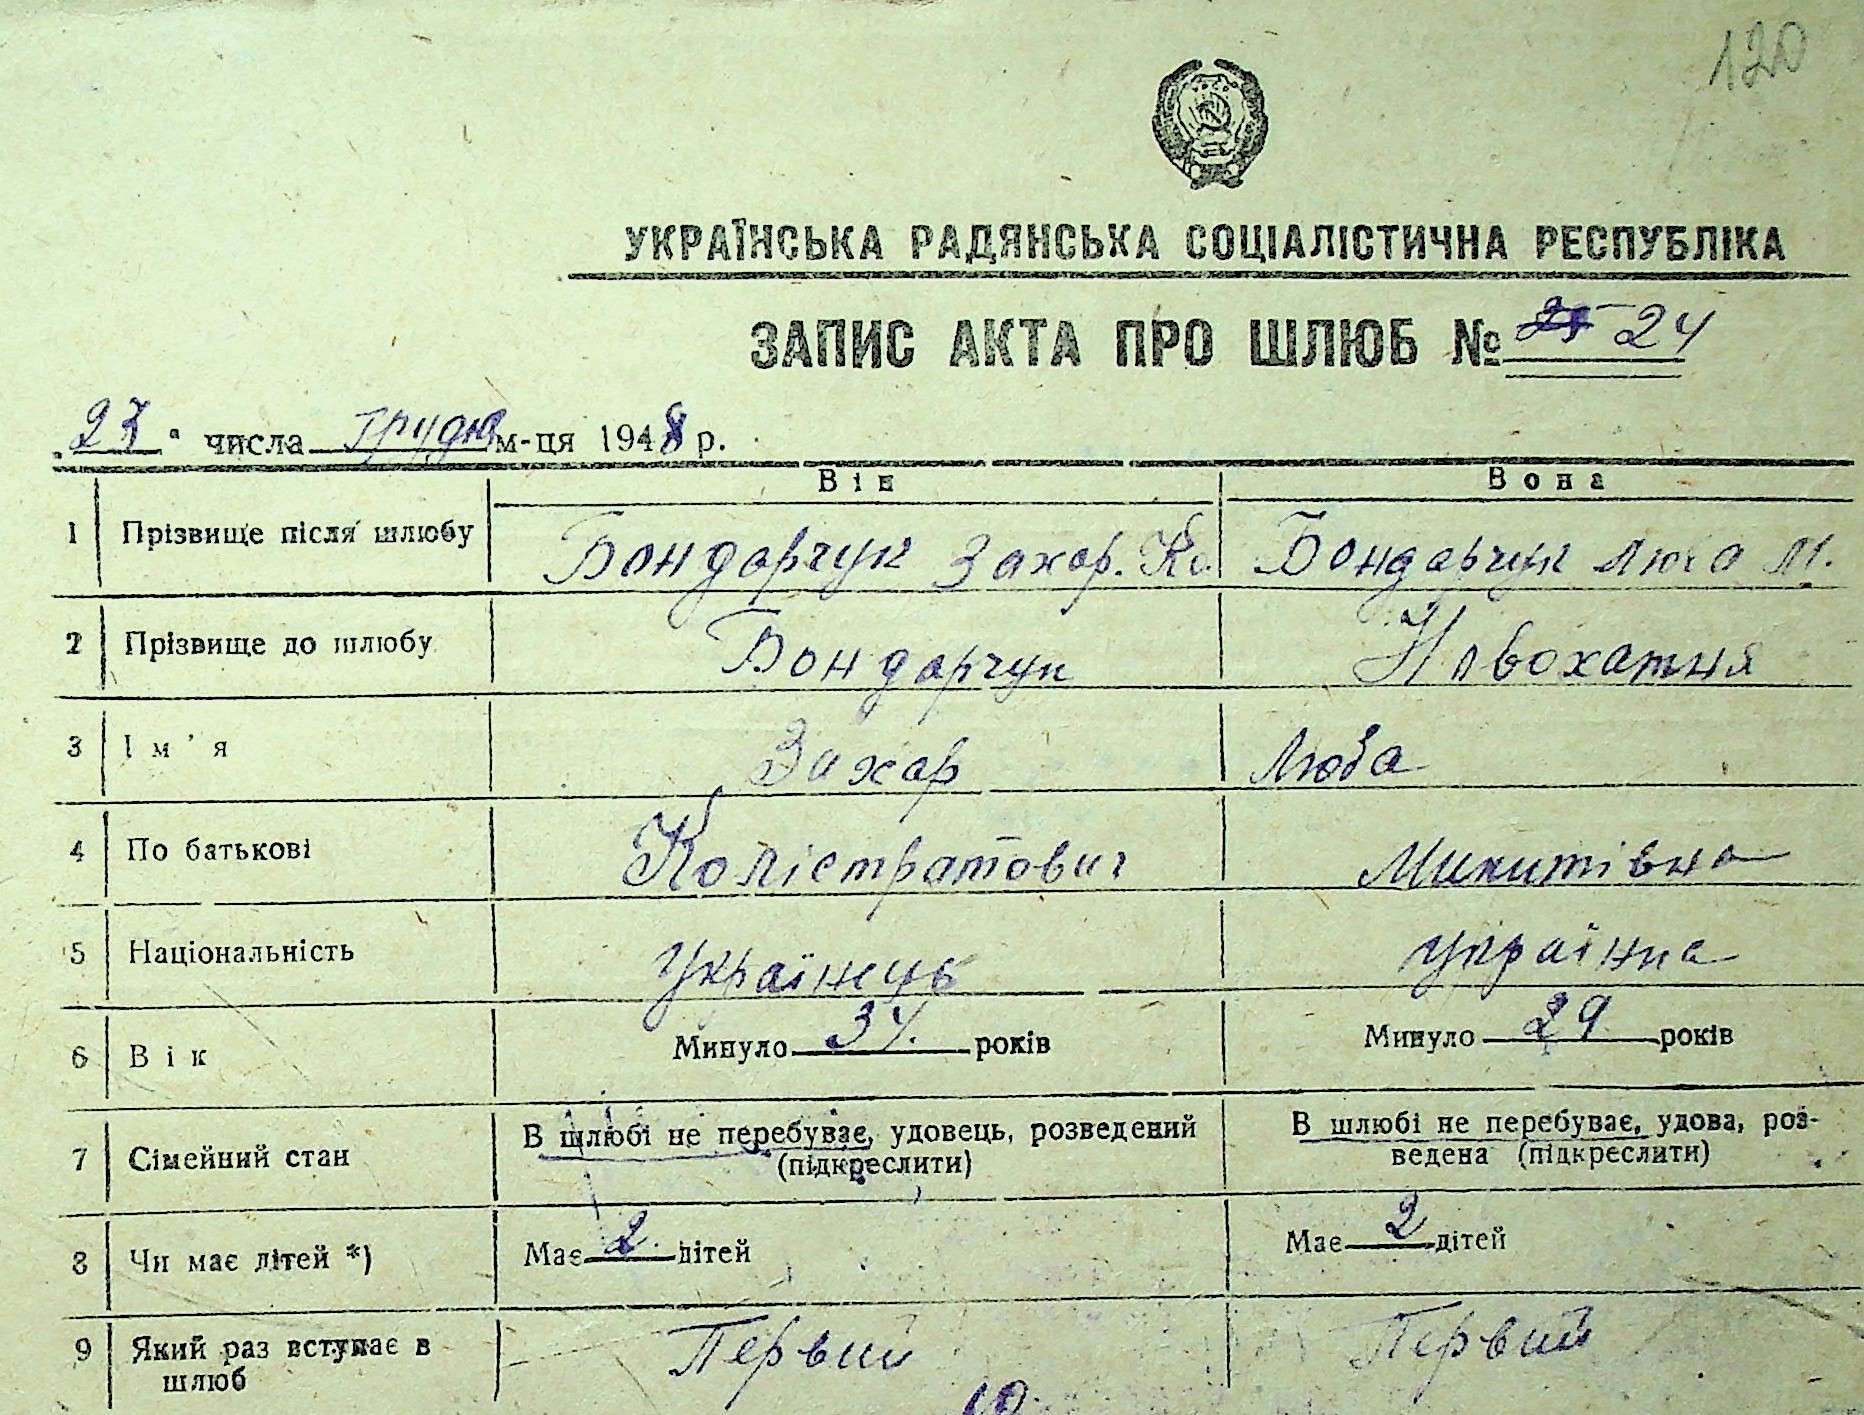 120
УКРАЇНСЬКА РАДЯНСЬКА СОЦІАЛІСТИЧНА РЕСПУБЛІКА
ЗАПИС АКТА ПРО ШЛЮБ № 25 24
„23“ числа грудня м-ця 1948 р.
Він Вона
1 Прізвище після шлюбу Бондарчук Захар. Ко. Бондарчук Люба М.
2 Прізвище до шлюбу Бондарчук Новохатня
3 Ім'я Захар Люба
4 По батьковіКолістратович Микитівна
5 Національність Українець Українка
6 Вік Минуло 34. років Минуло 29 років
7 Сімейний стан В шлюбі не перебуває, удовець, розведений (підкреслити) В шлюбі не перебуває, удова, розведена (підкреслити)
8 Чи має дітей *) Має 2 дітей Має 2 дітей
9 Який раз вступає в шлюб Первий Первий